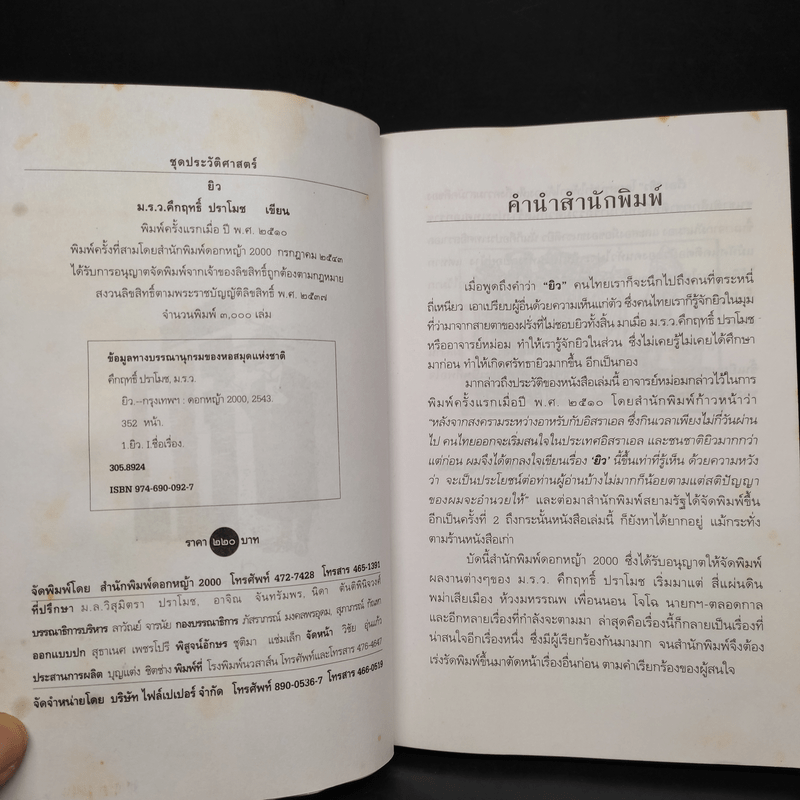 ชุดประวัติศาสตร์
ยิว
ม.ร.ว.คึกฤทธิ์ ปราโมช เขียน
พิมพ์ครั้งแรกเมื่อ ปี พ.ศ. ๒๕๑๐
พิมพ์ครั้งที่สามโดยสำนักพิมพ์ดอกหญ้า 2000 กรกฎาคม ๒๕๔๓
ได้รับการอนุญาตจัดพิมพ์จากเจ้าของลิขสิทธิ์ถูกต้องตามกฎหมาย
สงวนลิขสิทธิ์ตามพระราชบัญญัติลิขสิทธิ์ พ.ศ. ๒๕๓๗
จำนวนพิมพ์ ๓,๐๐๐ เล่ม
ข้อมูลทางบรรณานุกรมของหอสมุดแห่งชาติ
คึกฤทธิ์ ปราโมช, ม.ร.ว.
ยิว.--กรุงเทพฯ : ดอกหญ้า 2000, 2543.
352 หน้า.
1.ยิว. I.ชื่อเรื่อง.
305.8924
ISBN 974-690-092-7
ราคา ๒๒๐ บาท
จัดพิมพ์โดย สำนักพิมพ์ดอกหญ้า 2000 โทรศัพท์ 472-7428 โทรสาร 465-1391
ที่ปรึกษา ม.ล.วิสุมิตรา ปราโมช, อาจิณ จันทรัมพร, นิดา ตันติพินิจวงศ์
บรรณาธิการบริหาร ลาวัณย์ จารนัย กองบรรณาธิการ ภัสราภรณ์ มงคลพรอุดม, สุภาภรณ์
ออกแบบปก สุธาเนศ เพชรโปรี พิสูจน์อักษร ชุติมา แช่มเล็ก จัดหน้า วิชัย อุ่นแก้ว
ประสานการผลิต บุญแต่ง ชิตช่าง พิมพ์ที่ โรงพิมพ์นวสาส์น โทรศัพท์และโทรสาร 476-4647
จัดจำหน่ายโดย บริษัท ไฟล์เปเปอร์ จำกัด โทรศัพท์ 890-0536-7 โทรสาร 466-0519
คำนำสำนักพิมพ์
เมื่อพูดถึงคำว่า "ยิว" คนไทยเราก็จะนึกไปถึงคนที่ตระหนี่
ถี่เหนียว เอาเปรียบผู้อื่นด้วยความเห็นแก่ตัว ซึ่งคนไทยเราก็รู้จักยิวในมุม
ที่ว่ามาจากสายตาของฝรั่งที่ไม่ชอบยิวทั้งสิ้น มาเมื่อ ม.ร.ว.คึกฤทธิ์ ปราโมช
หรืออาจารย์หม่อม ทำให้เรารู้จักยิวในส่วน ซึ่งไม่เคยรู้ไม่เคยได้ศึกษา
มาก่อน ทำให้เกิดศรัทธายิวมากขึ้น อีกเป็นกอง
มากล่าวถึงประวัติของหนังสือเล่มนี้ อาจารย์หม่อมกล่าวไว้ในการ
พิมพ์ครั้งแรกเมื่อปี พ.ศ. ๒๕๑๐ โดยสำนักพิมพ์ก้าวหน้าว่า
"หลังจากสงครามระหว่างอาหรับกับอิสราเอล ซึ่งกินเวลาเพียงไม่กี่วันผ่าน
ไป คนไทยออกจะเริ่มสนใจในประเทศอิสราเอล และชนชาติยิวมากกว่า
แต่ก่อน ผมจึงได้ตกลงใจเขียนเรื่อง 'ยิว' นี้ขึ้นเท่าที่รู้เห็น ด้วยความหวัง
ว่า จะเป็นประโยชน์ต่อท่านผู้อ่านบ้างไม่มากก็น้อยตามแต่สติปัญญา
ของผมจะอำนวยให้" และต่อมาสำนักพิมพ์สยามรัฐได้จัดพิมพ์ขึ้น
อีกเป็นครั้งที่ 2 ถึงกระนั้นหนังสือเล่มนี้ ก็ยังหาได้ยากอยู่ แม้กระทั่ง
ตามร้านหนังสือเก่า
บัดนี้สำนักพิมพ์ดอกหญ้า 2000 ซึ่งได้รับอนุญาตให้จัดพิมพ์
ผลงานต่างๆของ ม.ร.ว. คึกฤทธิ์ ปราโมช เริ่มมาแต่ สี่แผ่นดิน
พม่าเสียเมือง ห้วงมหรรณพ เพื่อนนอน โจโฉ นายกฯ-ตลอดกาล
และอีกหลายเรื่องที่กำลังจะตามมา ล่าสุดคือเรื่องนี้ก็กลายเป็นเรื่องที่
น่าสนใจอีกเรื่องหนึ่ง ซึ่งมีผู้เรียกร้องกันมามาก จนสำนักพิมพ์จึงต้อง
เร่งรัดพิมพ์ขึ้นมาตัดหน้าเรื่องอื่นก่อน ตามคำเรียกร้องของผู้สนใจ